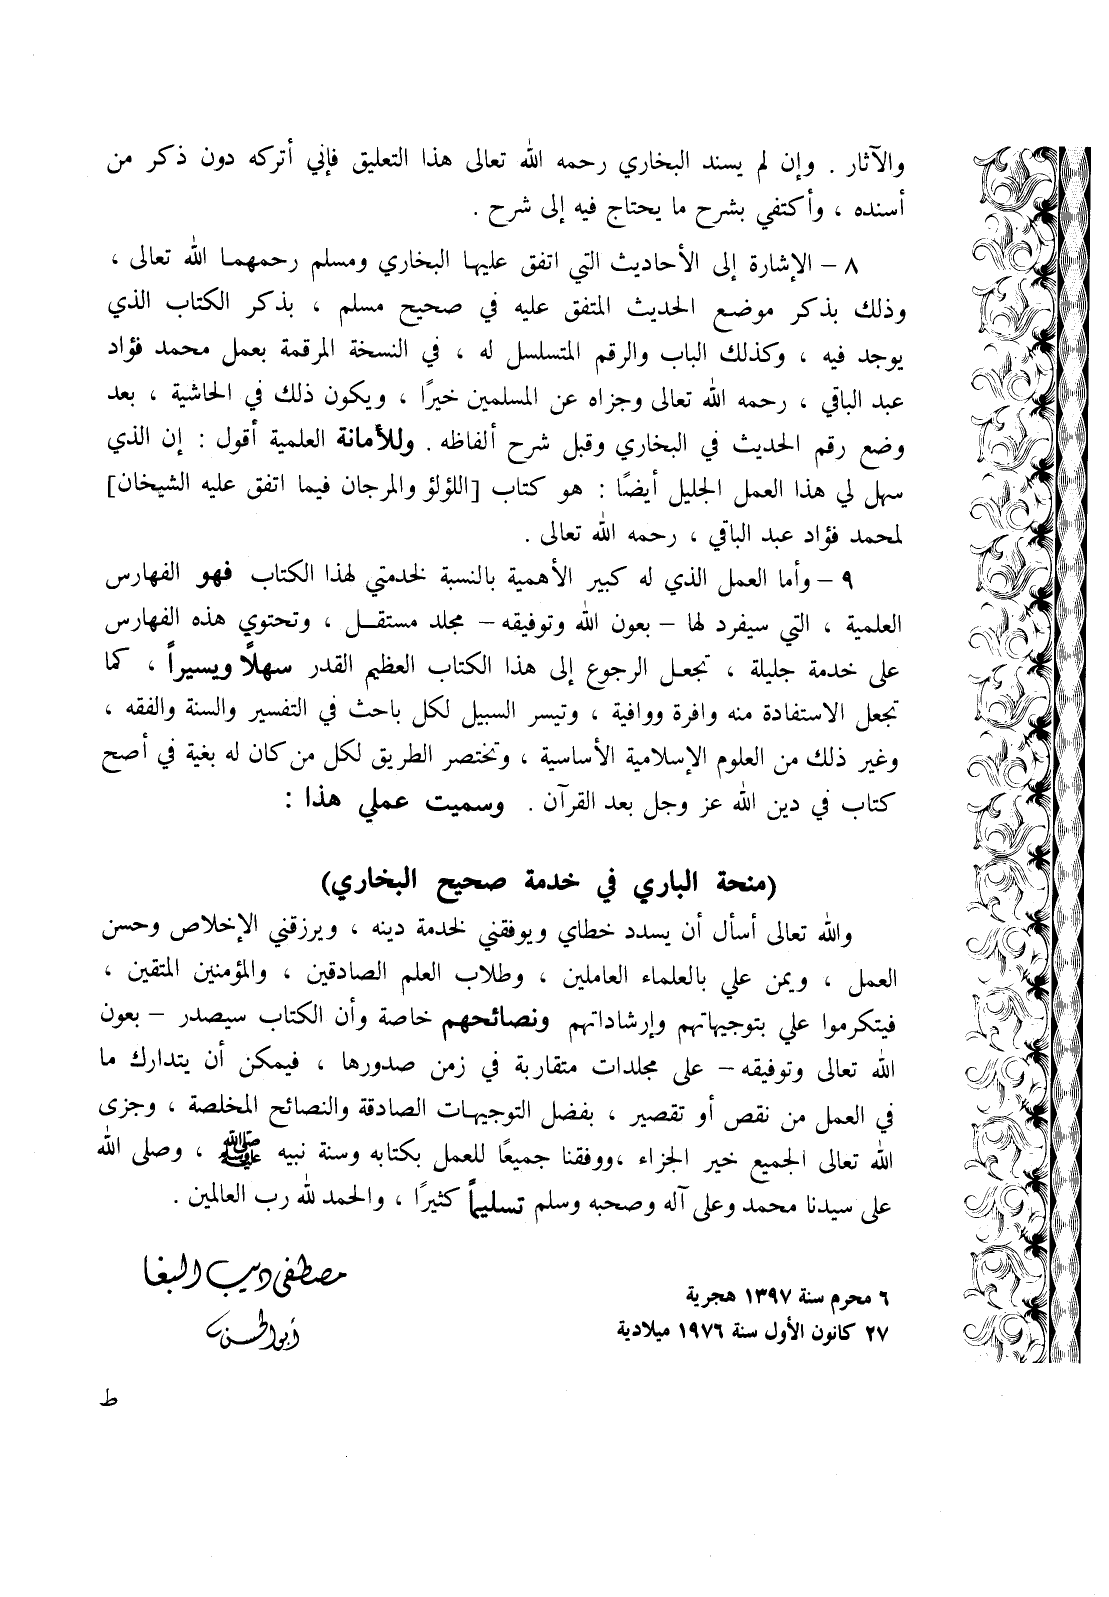 والآثار . وإن لم يسند البخاري رحمه الله تعالى هذا التعليق فإني أتركه دون ذكر من
أسنده ، وأكتفي بشرح ما يحتاج فيه إلى شرح .
٨ – الإشارة إلى الأحاديث التي اتفق عليها البخاري ومسلم رحمهما الله تعالى ،
وذلك بذكر موضع الحديث المتفق عليه في صحيح مسلم ، بذكر الكتاب الذي
يوجد فيه ، وكذلك الباب والرقم المتسلسل له ، في النسخة المرقمة بعمل محمد فؤاد
عبد الباقي ، رحمه الله تعالى وجزاه عن المسلمين خيرًا ، ويكون ذلك في الحاشية ، بعد
وضع رقم الحديث في البخاري وقبل شرح ألفاظه . وللأمانة العلمية أقول : إن الذي
سهل لي هذا العمل الجليل أيضًا : هو كتاب [اللؤلؤ والمرجان فيما اتفق عليه الشيخان]
لمحمد فؤاد عبد الباقي ، رحمه الله تعالى .
٩ – وأما العمل الذي له كبير الأهمية بالنسبة لخدمتي لهذا الكتاب فهو الفهارس
العلمية ، التي سيفرد لها – بعون الله وتوفيقه – مجلد مستقل ، وتحتوي هذه الفهارس
على خدمة جليلة ، تجعل الرجوع إلى هذا الكتاب العظيم القدر سهلاً ويسيراً ، كما
تجعل الاستفادة منه وافرة ووافية ، وتيسر السبيل لكل باحث في التفسير والسنة والفقه ،
وغير ذلك من العلوم الإسلامية الأساسية ، وتختصر الطريق لكل من كان له بغية في أصح
كتاب في دين الله عز وجل بعد القرآن . وسميت عملي هذا :
(منحة الباري في خدمة صحيح البخاري)
والله تعالى أسأل أن يسدد خطاي ويوفقني لخدمة دينه ، ويرزقني الإخلاص وحسن
العمل ، ويمن علي بالعلماء العاملين ، وطلاب العلم الصادقين ، والمؤمنين المتقين ،
فيتكرموا علي بتوجيهاتهم وإرشاداتهم ونصائحهم خاصة وأن الكتاب سيصدر – بعون
الله تعالى وتوفيقه – على مجلدات متقاربة في زمن صدورها ، فيمكن أن يتدارك ما
في العمل من نقص أو تقصير ، بفضل التوجيهات الصادقة والنصائح المخلصة ، وجزى
الله تعالى الجميع خير الجزاء ،ووفقنا جميعًا للعمل بكتابه وسنة نبيه ﷺ ، وصلى الله
على سيدنا محمد وعلى آله وصحبه وسلم تسليماً كثيرًا ، والحمد لله رب العالمين .
مصطفى ديب البغا
أبو الحسن
٦ محرم سنة ١٣٩٧ هجرية
٢٧ كانون الأول سنة ١٩٧٦ ميلادية
ط